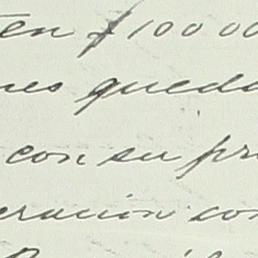 ten $100 00
nes queda
con su pr
eracion con